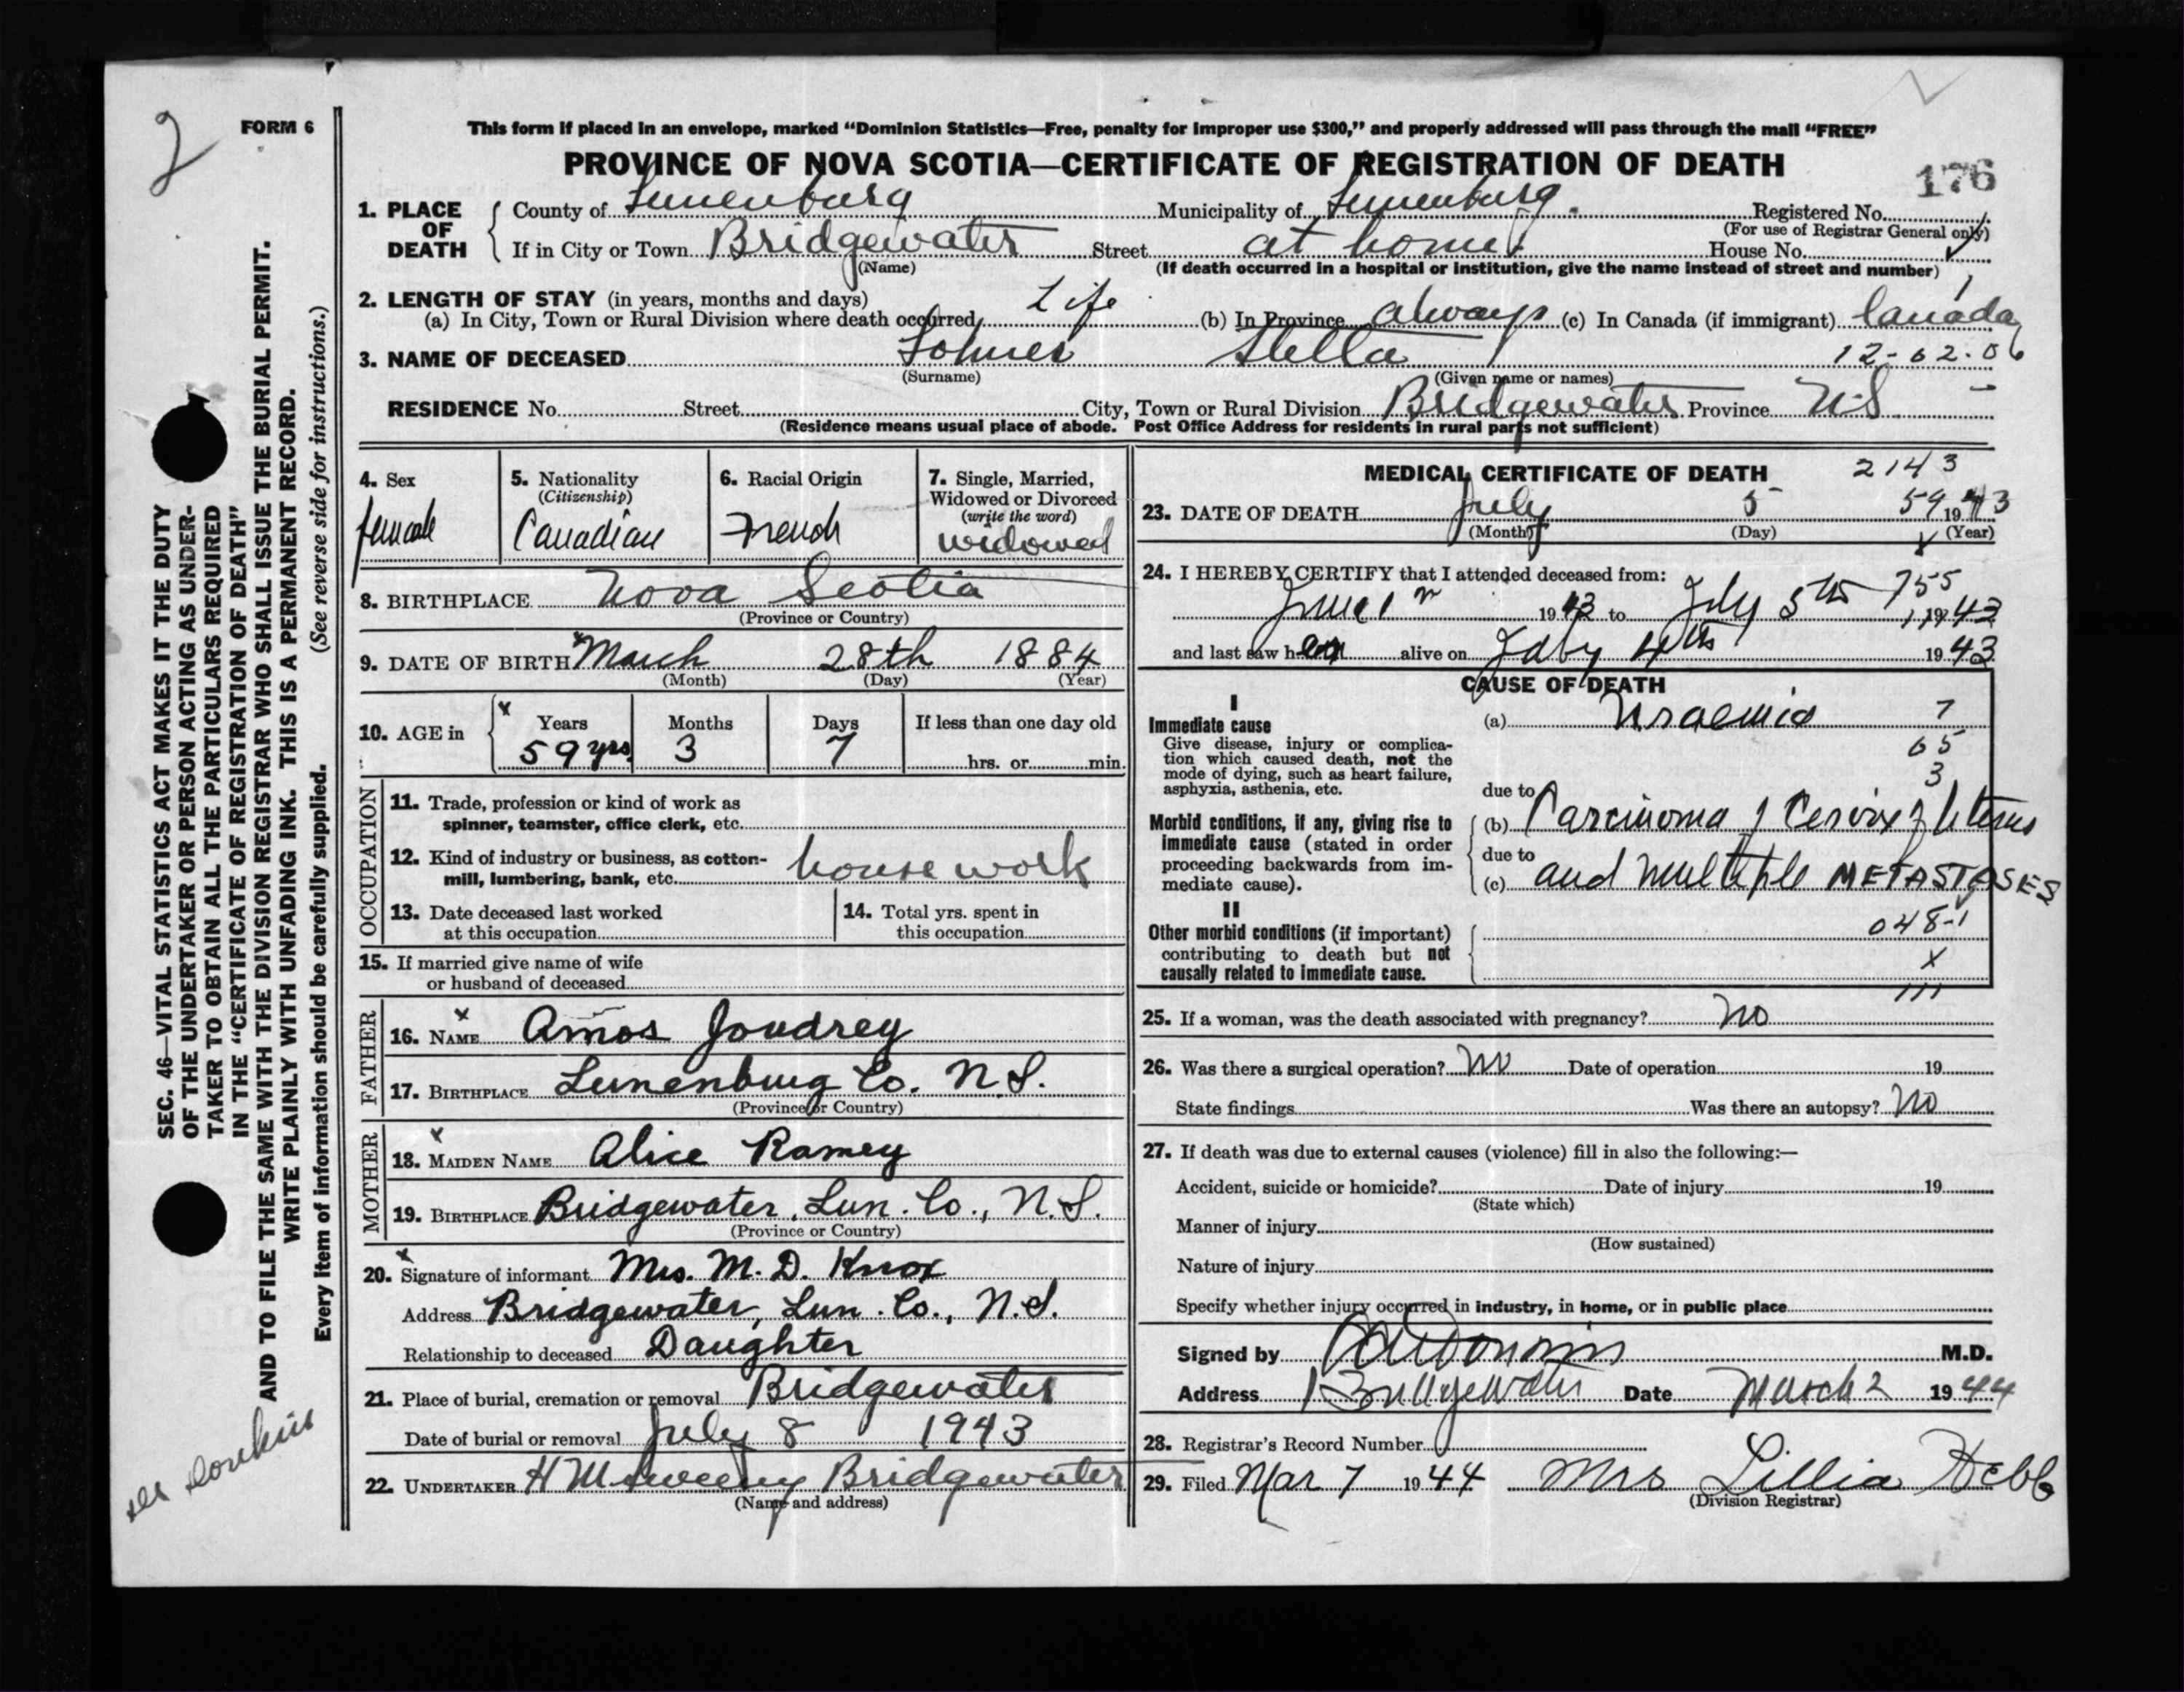 2
FORM 6
This form if placed in an envelope, marked "Dominion Statistics—Free, penalty for improper use $300," and properly addressed will pass through the mail "FREE"
PROVINCE OF NOVA SCOTIA—CERTIFICATE OF REGISTRATION OF DEATH
176
1. PLACE OF DEATH
County of Lunenburg Municipality of Lunenburg. Registered No.
(For use of Registrar General only)
If in City or Town Bridgewater Street at home House No.
(Name)
(If death occurred in a hospital or institution, give the name instead of street and number)
2. LENGTH OF STAY (in years, months and days)
(a) In City, Town or Rural Division where death occurred Life (b) In Province always (c) In Canada (if immigrant) Canada
3. NAME OF DECEASED Lohnes Stella 12-02-06
(Surname) (Given name or names)
RESIDENCE No. Street City, Town or Rural Division Bridgewater Province N.S
(Residence means usual place of abode. Post Office Address for residents in rural parts not sufficient)
4. Sex
female
5. Nationality
(Citizenship)
Canadian
6. Racial Origin
French
7. Single, Married,
Widowed or Divorced
(write the word)
widowed
8. BIRTHPLACE Nova Scotia
(Province or Country)
9. DATE OF BIRTH March 28th 1884
(Month) (Day) (Year)
10. AGE in
Years Months Days If less than one day old
59 yrs. 3 7 hrs. or min.
OCCUPATION
11. Trade, profession or kind of work as
spinner, teamster, office clerk, etc.
12. Kind of industry or business, as cotton-
mill, lumbering, bank, etc. house work
13. Date deceased last worked
at this occupation
14. Total yrs. spent in
this occupation
15. If married give name of wife
or husband of deceased
FATHER
16. NAME Amos Joudrey
17. BIRTHPLACE Lunenburg Co. N.S.
(Province or Country)
MOTHER
18. MAIDEN NAME Alice Ramey
19. BIRTHPLACE Bridgewater, Lun. Co., N.S.
(Province or Country)
20. Signature of informant Mrs. M. D. Knox
Address Bridgewater, Lun. Co., N.S.
Relationship to deceased Daughter
21. Place of burial, cremation or removal Bridgewater
Date of burial or removal July 8 1943
22. UNDERTAKER H M Sweeny Bridgewater
(Name and address)
MEDICAL CERTIFICATE OF DEATH 2143
23. DATE OF DEATH July 5 59 1943
(Month) (Day) (Year)
24. I HEREBY CERTIFY that I attended deceased from:
755
June 1 1943 to July 5th 1943
and last saw her alive on July 4th 1943
CAUSE OF DEATH
I
Immediate cause
Give disease, injury or complica-
tion which caused death, not the
mode of dying, such as heart failure,
asphyxia, asthenia, etc.
(a) Uraemia 7
65
3
due to
Morbid conditions, if any, giving rise to
immediate cause (stated in order
proceeding backwards from im-
mediate cause).
(b) Carcinoma of Cervix of Uterus
due to
(c) and multiple METASTASES
II
Other morbid conditions (if important)
contributing to death but not
causally related to immediate cause.
048-1
X
111
25. If a woman, was the death associated with pregnancy? No
26. Was there a surgical operation? No Date of operation 19
State findings Was there an autopsy? No
27. If death was due to external causes (violence) fill in also the following:—
Accident, suicide or homicide? Date of injury 19
(State which)
Manner of injury
(How sustained)
Nature of injury
Specify whether injury occurred in industry, in home, or in public place
Signed by M.D.
Address Bridgewater Date March 2 1944
28. Registrar's Record Number
29. Filed Mar 7 1944 Mrs Lillia Hebb
(Division Registrar)
SEC. 46—VITAL STATISTICS ACT MAKES IT THE DUTY
OF THE UNDERTAKER OR PERSON ACTING AS UNDER-
TAKER TO OBTAIN ALL THE PARTICULARS REQUIRED
IN THE "CERTIFICATE OF REGISTRATION OF DEATH"
AND TO FILE THE SAME WITH THE DIVISION REGISTRAR WHO SHALL ISSUE THE BURIAL PERMIT.
WRITE PLAINLY WITH UNFADING INK. THIS IS A PERMANENT RECORD.
Every item of information should be carefully supplied. (See reverse side for instructions.)